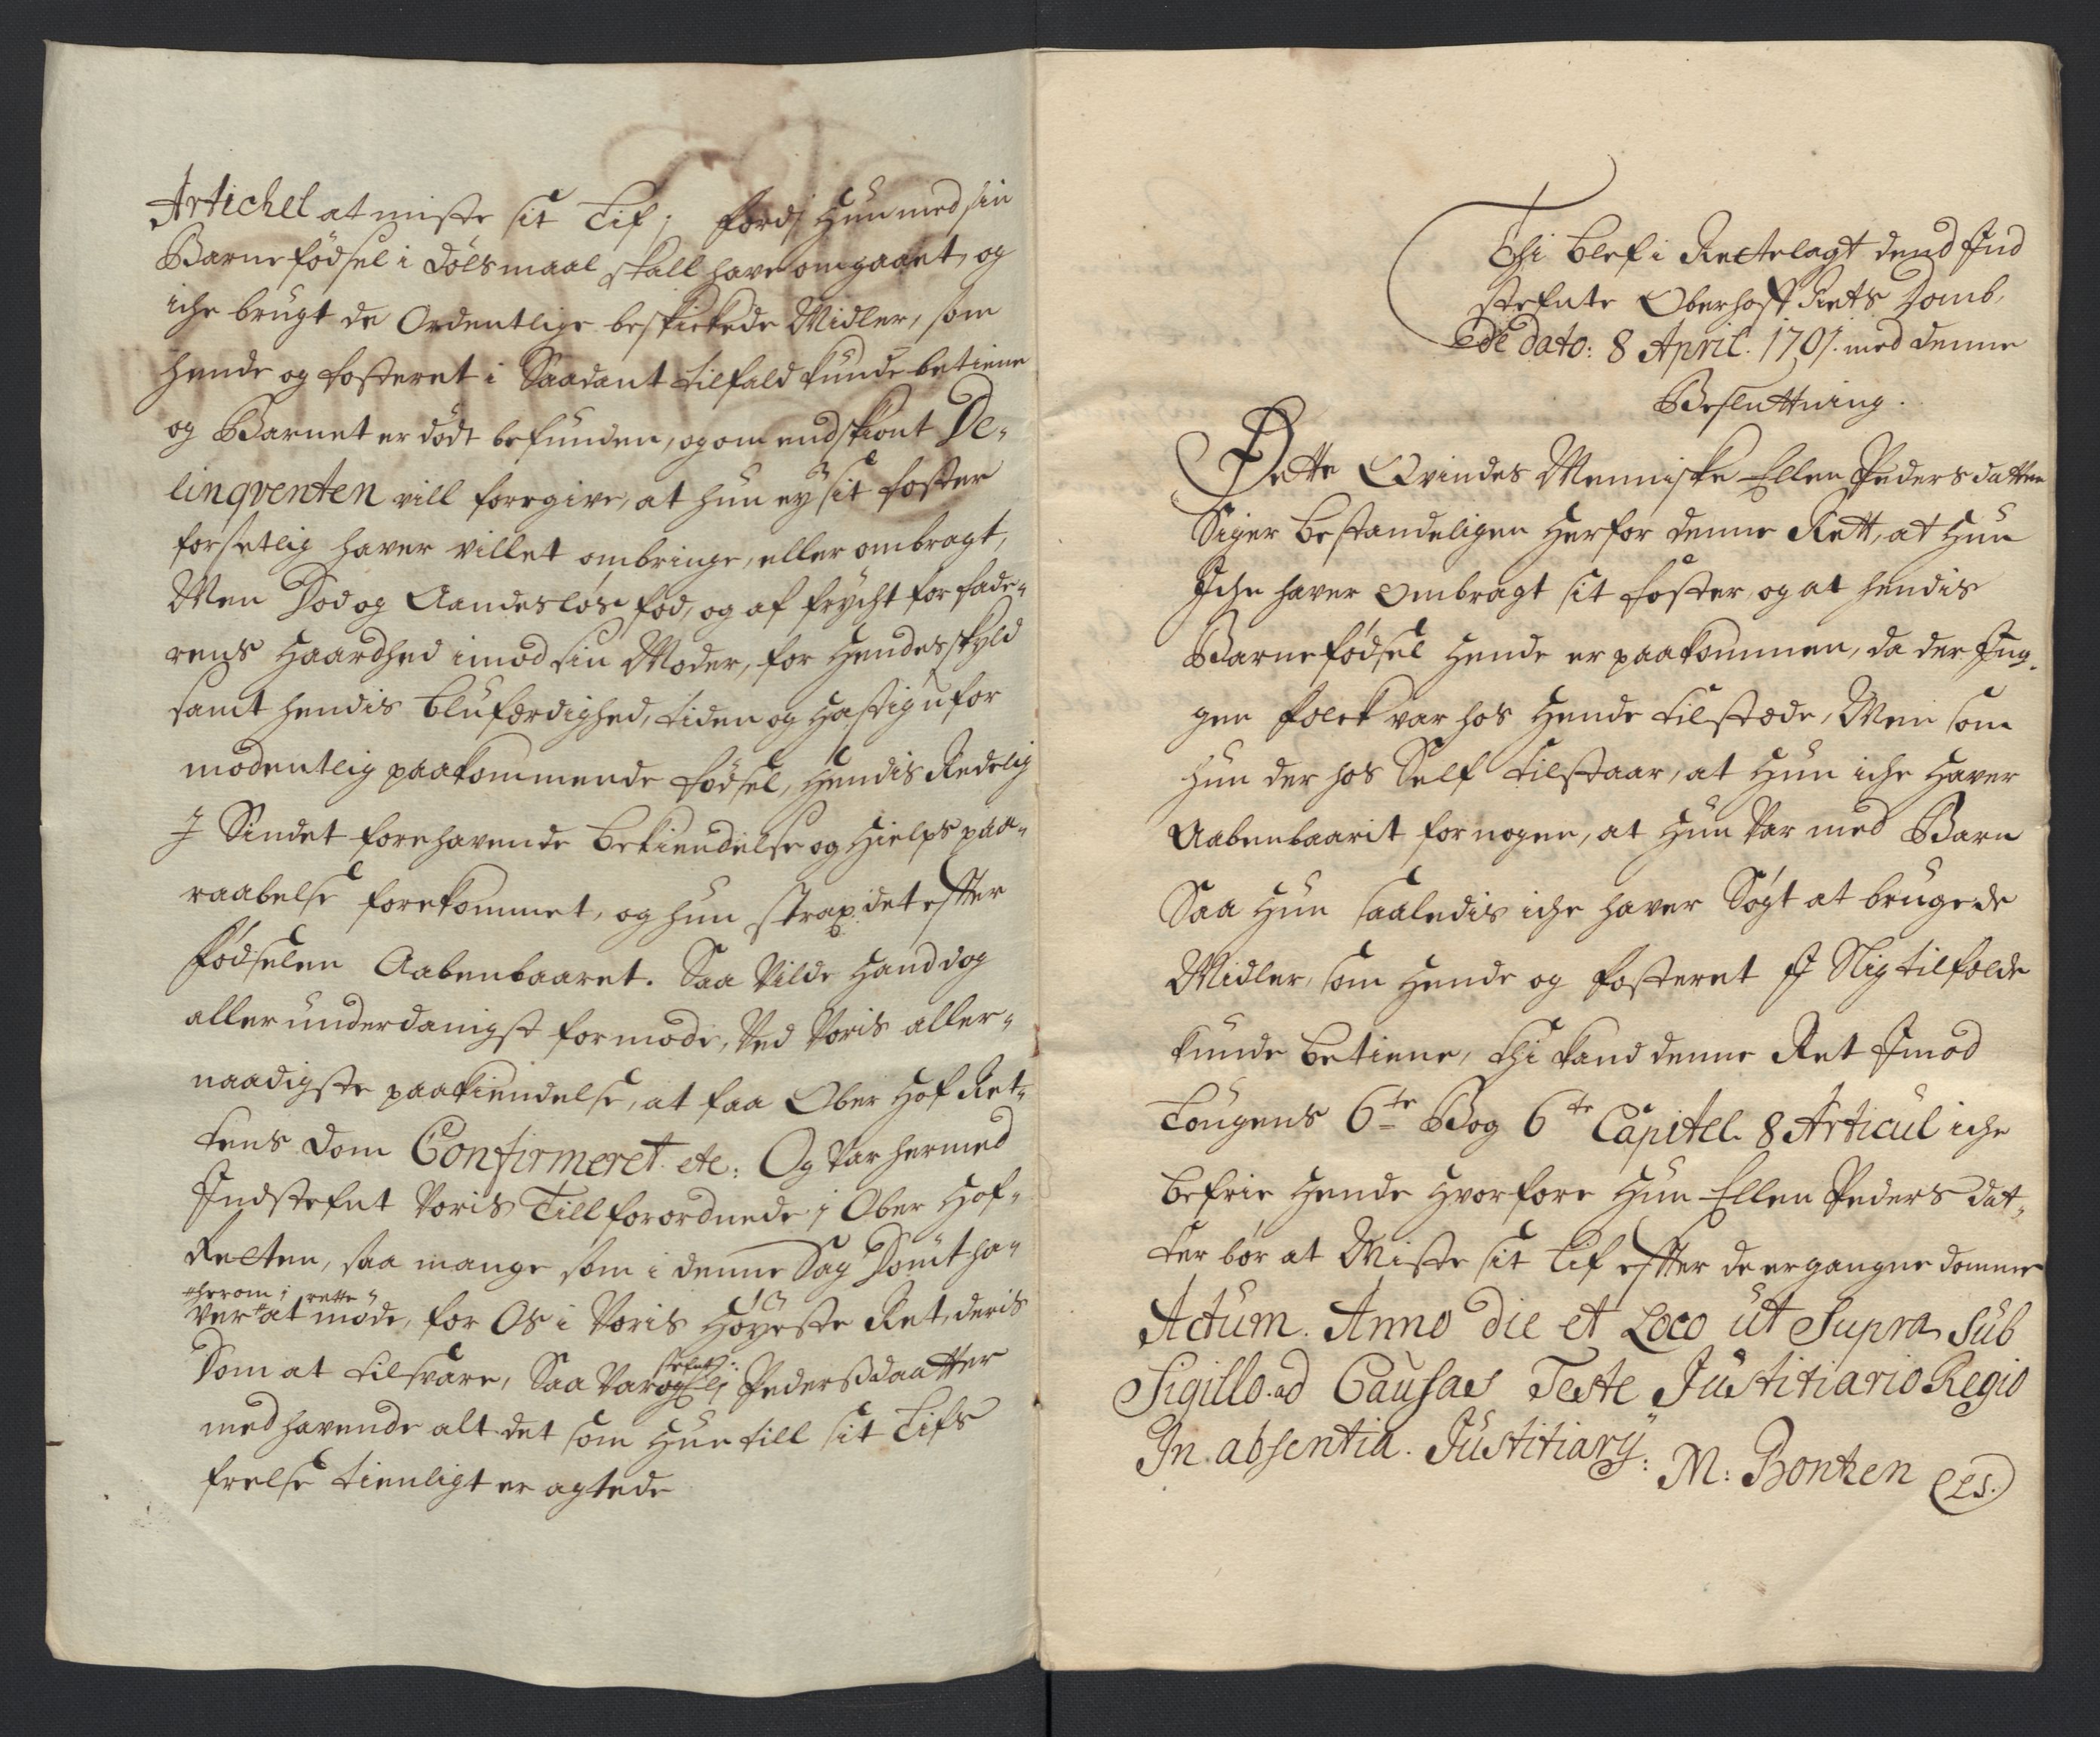 Artichel at miste sit Lif; fordj Hun med sin
Barnefødsel i dølsmaal skall have omgaaet, og
iche brugt de Ordentlige beskickede Midler, som
hende og fosteret i Saadant tilfald kunde betiene
og Barnet er dødt befunden, og om endskiønt De-
linqventen vill foregive, at hun ey sit foster
forsetlig haver villet ombringe, eller ombragt,
Men Død og Aandesløs fød, og af frycht for fade-
rens Haardhed imod sin Moder, for Hendes skyld
samt hendis blufærdighed, tiden og Hastig ufor
modentlig paakommende fødsel, Hendis Redelig
J Sindet forehavende bekiendelse og Hielps paa-
raabelse forekommet, og hun strax det effter
fødselen Aabenbaaret. Saa Vilde Hand dog
allerunderdanigst formode, Ved Voris aller-
naadigste paakiendelse, at faa Ober Hof Ret-
tens dom Confirmeret etc: Og Var hermed
Indstefnt Voris Tillforordnede j Ober Hof-
Retten, saa mange som i denne Sag Dømt ha-
herom i rette
ver at møde, for Os i Voris Høyeste Ret, deris
Dom at tilsvare, Saa Var og Pedersdaatter
med havende alt det som Hun till sit Lifs
frelse tienligt er agtede
Thi blef i Rettelagt dend Ind
stefnte Oberhoff Rets Domb,
de dato: 8 April. 1701. med denne
Besluttning.
Dette Qvindes Menniske Ellen Peders datter
Siger bestandeligen Herfor denne Rett, at Hun
Iche haver Ombragt sit foster, og at hendis
Barnefødsel Hende er paakommen, da der Ing-
gen folck var hos Hende tilstæde, Men som
Hun der hos Self tilstaar, at Hun iche Haver
Aabenbaarit for nogen, at Hun Var med Barn
Saa Hun saaledis iche haver Søgt at bruge de
Midler, som Hende og fosteret J Slig tilfelde
kunde betiene, thi kand denne Ret Imod
Lougens 6te Bog 6te Capitel 8 Articul iche
befrie Hende Hvorfore Hun Ellen Peders dat-
ter bør at Miste sit Lif effter de ergangne domme
Actum. Anno die et Loco ut Supra Sub
Sigillo ad Causas Teste Justitiario Regio
In absentia. Justitiarij: M: Bonten (LS.)